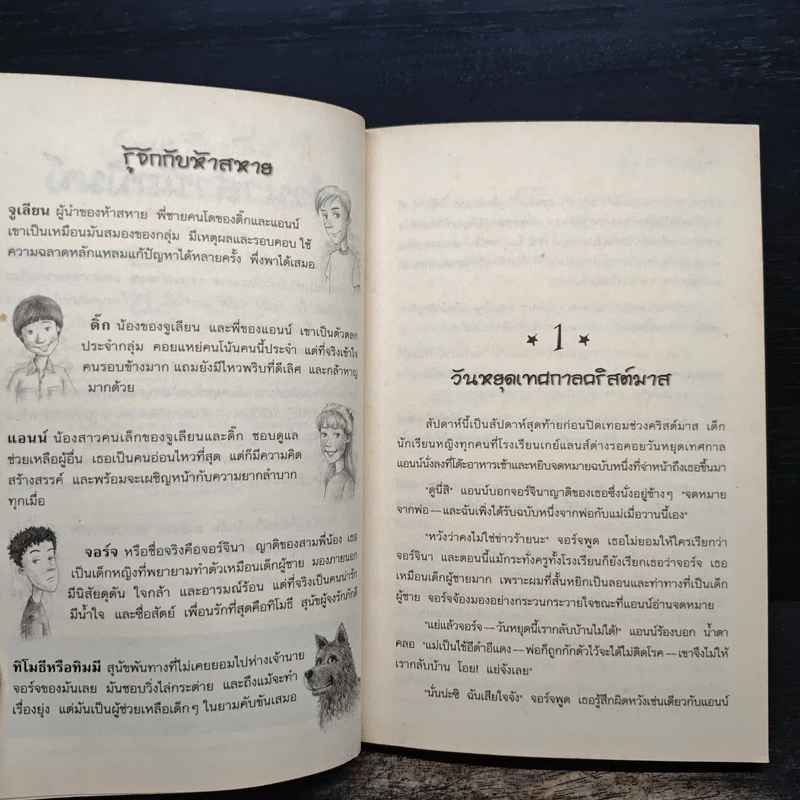 รู้จักกับห้าสหาย
จูเลียน ผู้นำของห้าสหาย พี่ชายคนโตของดิ๊กและแอนน์
เขาเป็นเหมือนมันสมองของกลุ่ม มีเหตุผลและรอบคอบ ใช้
ความฉลาดหลักแหลมแก้ปัญหาได้หลายครั้ง พึ่งพาได้เสมอ
ดิ๊ก น้องของจูเลียน และพี่ของแอนน์ เขาเป็นตัวตลก
ประจำกลุ่ม คอยแหย่คนโน้นคนนี้ประจำ แต่ที่จริงเข้าใจ
คนรอบข้างมาก แถมยังมีไหวพริบที่ดีเลิศ และกล้าหาญ
มากด้วย
แอนน์ น้องสาวคนเล็กของจูเลียนและดิ๊ก ชอบดูแล
ช่วยเหลือผู้อื่น เธอเป็นคนอ่อนไหวที่สุด แต่ก็มีความคิด
สร้างสรรค์ และพร้อมจะเผชิญหน้ากับความยากลำบาก
ทุกเมื่อ
จอร์จ หรือชื่อจริงคือจอร์จินา ญาติของสามพี่น้อง เธอ
เป็นเด็กหญิงที่พยายามทำตัวเหมือนเด็กผู้ชาย มองภายนอก
มีนิสัยดุดัน ใจกล้า และอารมณ์ร้อน แต่ที่จริงเป็นคนน่ารัก
มีน้ำใจ และซื่อสัตย์ เพื่อนรักที่สุดคือทิโมธี สุนัขผู้จงรักภักดี
ทิโมธีหรือทิมมี สุนัขพันทางที่ไม่เคยยอมไปห่างเจ้านาย
จอร์จของมันเลย มันชอบวิ่งไล่กระต่าย และถึงแม้จะทำ
เรื่องยุ่ง แต่มันเป็นผู้ช่วยเหลือเด็กๆ ในยามคับขันเสมอ
1
วันหยุดเทศกาลคริสต์มาส
สัปดาห์นี้เป็นสัปดาห์สุดท้ายก่อนปิดเทอมช่วงคริสต์มาส เด็ก
นักเรียนหญิงทุกคนที่โรงเรียนเกย์แลนส์ต่างรอคอยวันหยุดเทศกาล
แอนน์นั่งลงที่โต๊ะอาหารเช้าและหยิบจดหมายฉบับหนึ่งที่จ่าหน้าถึงเธอขึ้นมา
"ดูนี่สิ" แอนน์บอกจอร์จินาญาติของเธอซึ่งนั่งอยู่ข้างๆ "จดหมาย
จากพ่อ—และฉันเพิ่งได้รับฉบับหนึ่งจากพ่อกับแม่เมื่อวานนี้เอง"
"หวังว่าคงไม่ใช่ข่าวร้ายนะ" จอร์จพูด เธอไม่ยอมให้ใครเรียกว่า
จอร์จินา และตอนนี้แม้กระทั่งครูทั้งโรงเรียนก็ยังเรียกเธอว่าจอร์จ เธอ
เหมือนเด็กผู้ชายมาก เพราะผมที่สั้นหยิกเป็นลอนและท่าทางที่เป็นเด็ก
ผู้ชาย จอร์จจ้องมองอย่างกระวนกระวายใจขณะที่แอนน์อ่านจดหมาย
"แย่แล้วจอร์จ—วันหยุดนี้เรากลับบ้านไม่ได้!" แอนน์ร้องบอก น้ำตา
คลอ "แม่เป็นไข้อีดำอีแดง—พ่อก็ถูกกักตัวไว้จะได้ไม่ติดโรค—เขาจึงไม่ให้
เรากลับบ้าน โอย! แย่จังเลย"
"นั่นน่ะซิ ฉันเสียใจจัง" จอร์จพูด เธอรู้สึกผิดหวังเช่นเดียวกับแอนน์